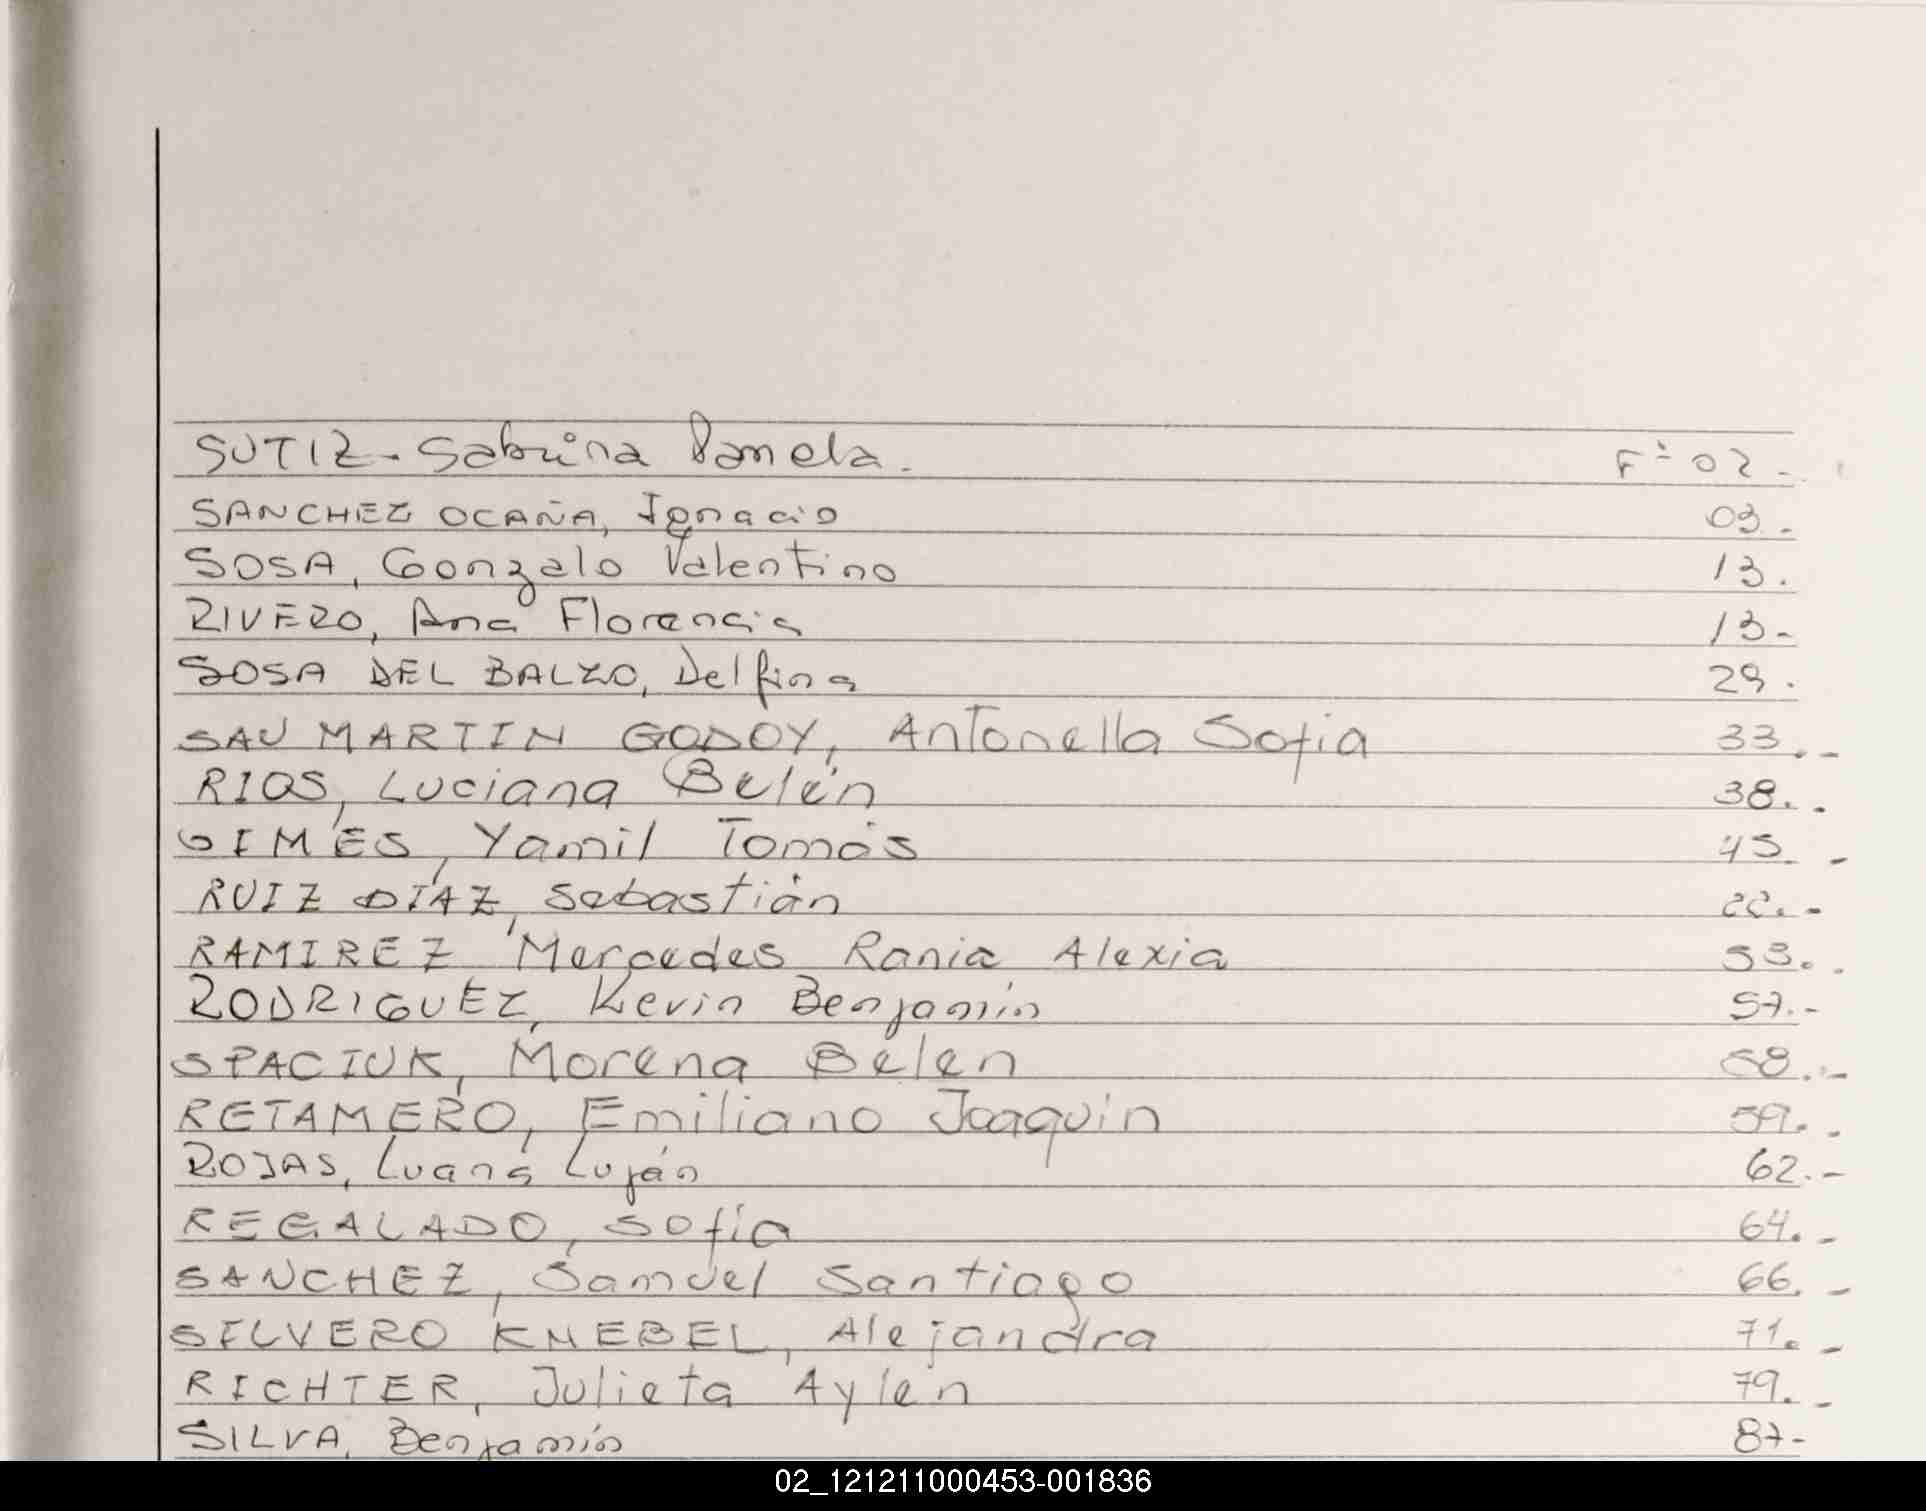 SUTIZ - Sabrina Pamela. Fº 02 -
SANCHEZ OCAÑA, Ignacio 03.-
SOSA, Gonzalo Valentino 13.
RIVERO, Ana Florencia 13-
SOSA DEL BALZO, Delfina 29.
SAN MARTIN GODOY, Antonella Sofia 33.-
RIOS, Luciana Belén 38..
GIMES, Yamil Tomás 45.-
RUIZ DÍAZ, Sebastián 22.-
RAMIREZ Mercedes Rania Alexia 53..
RODRIGUEZ, Kevin Benjamín 57.-
SPACIUK, Morena Belen 58.-
RETAMERO, Emiliano Joaquin 59..
ROJAS, Luana Luján 62.-
REGALADO, Sofia 64.-
SANCHEZ, Samuel Santiago 66.-
SILVERO KNEBEL, Alejandra 71.-
RICHTER, Julieta Aylen 79.-
SILVA, Benjamín 87-
02_121211000453-001836